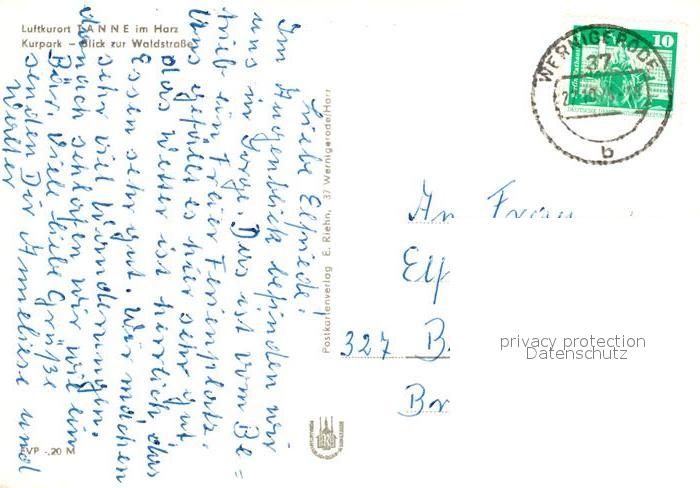 Luftkurort TANNE im Harz
Kurpark – Blick zur Waldstraße
Liebe Elfriede!
Im Augenblick befinden wir
uns in Sorge. Das ist vom Be=
trieb ein Freier Ferienplatz.
Uns gefällt es hier sehr gut,
das Wetter ist herrlich das
Essen sehr gut. Wir machen
sehr viel Wanderungen.
danach schlafen wir wie ein
Bär. Viele liebe Grüße
senden Dir Anneliese und
Walter
EVP -,20 M
Postkartenverlag E. Riehn, 37 Wernigerode/Harz
WERNIGERODE
37
b
10
An Frau
Elf
327 B
Br
privacy protection
Datenschutz